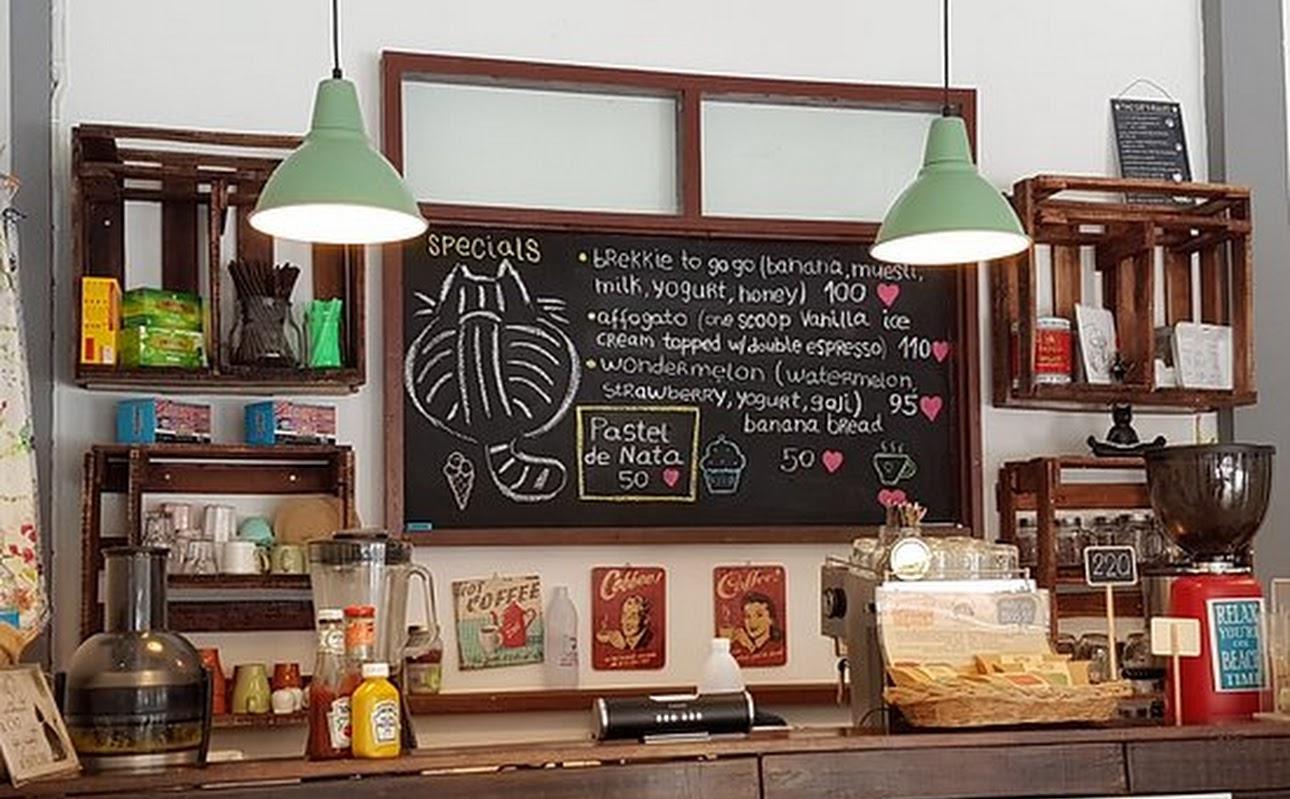 specials
• brekkie to go go (banana, muesli,
milk, yogurt, honey) 100
• affogato (one scoop vanilla ice
cream topped w/double espresso) 110
• wondermelon (watermelon,
strawberry, yogurt, goji) 95
banana bread
50
Pastel
de Nata
50
HOT
COFFEE
Coffee!
Coffee!
220
RELAX
YOU'RE
ON
BEACH
TIME